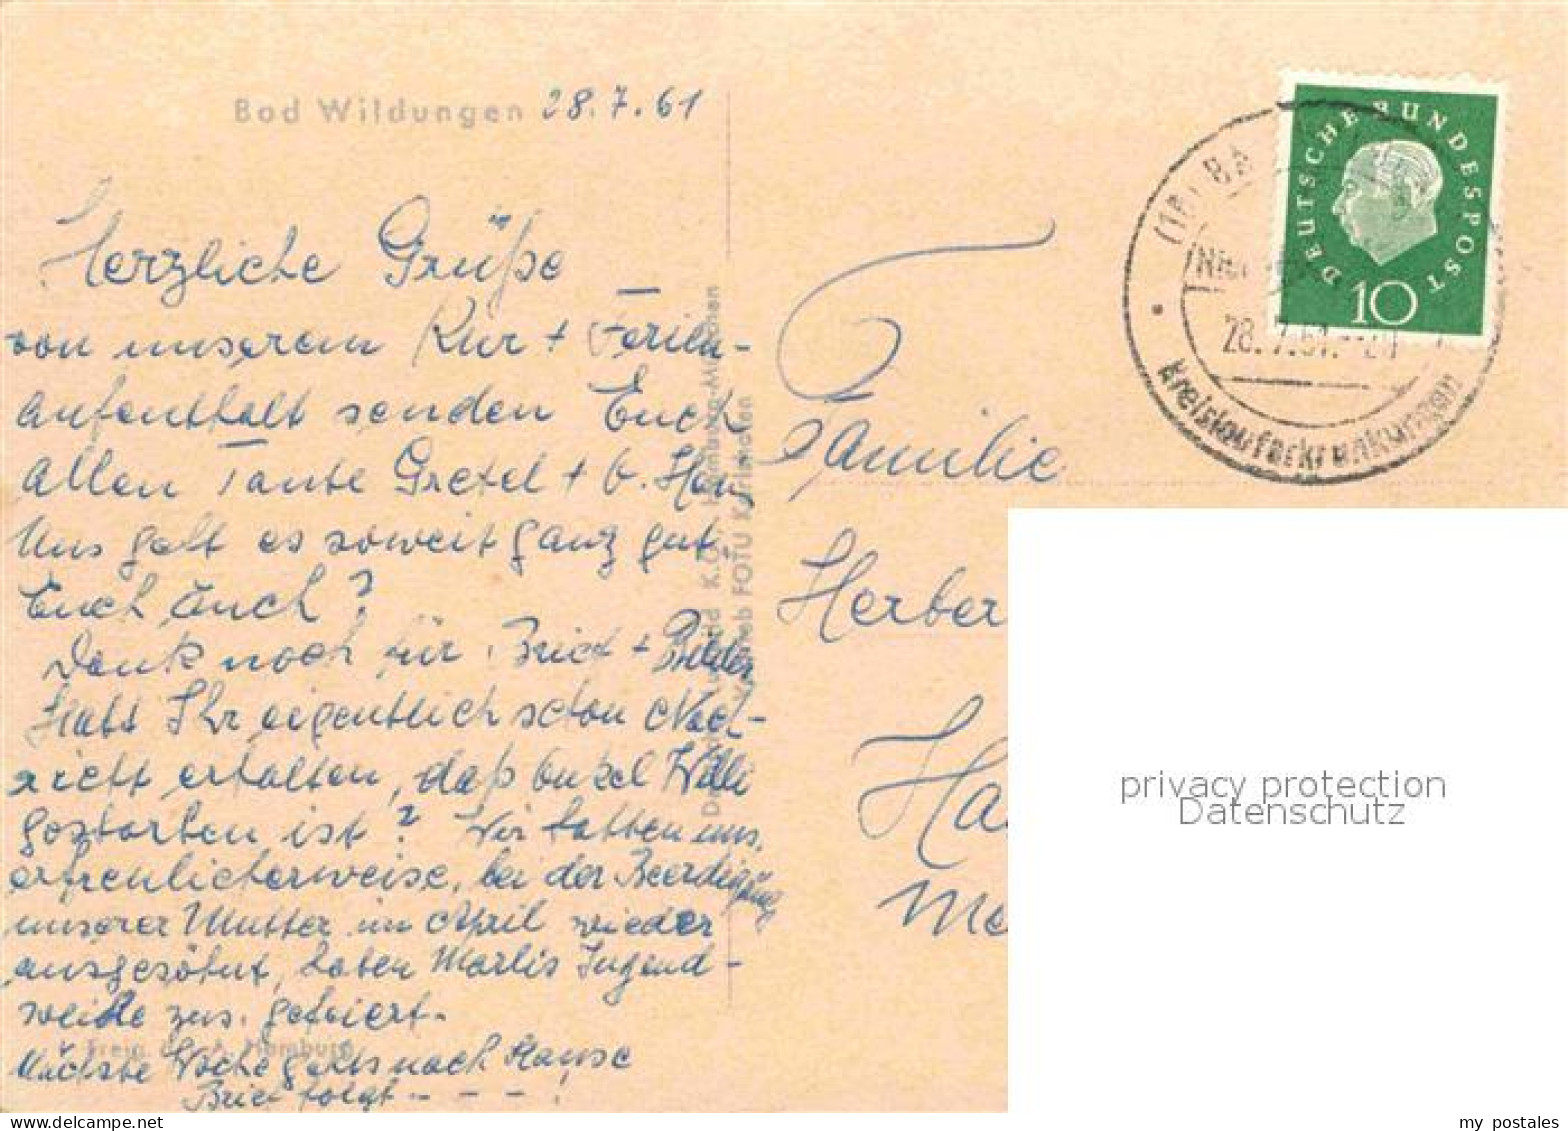 Bad Wildungen 28.7.61
Herzliche Grüße
von unserem Kur + Ferien-
aufenthalt senden Euch
allen Tante Gretel + O. Han
Uns geht es soweit ganz gut
Euch auch?
Dank noch für Brief + Bilder
Habt Ihr eigentlich schon Nach-
richt erhalten, daß Onkel Willi
gestorben ist? Wir hatten uns,
erfreulicherweise, bei der Beerdigung
unserer Mutter im April wieder
ausgesöhnt, haben Marlis Jugend-
weihe zus. gefeiert.
Nächste Woche gehts nach Hause
Brief folgt - - - !
Familie
Herber
Ha
Me
DEUTSCHE BUNDESPOST
10
28.7.61
Kreislauferkrankungen
privacy protection
Datenschutz
my postales